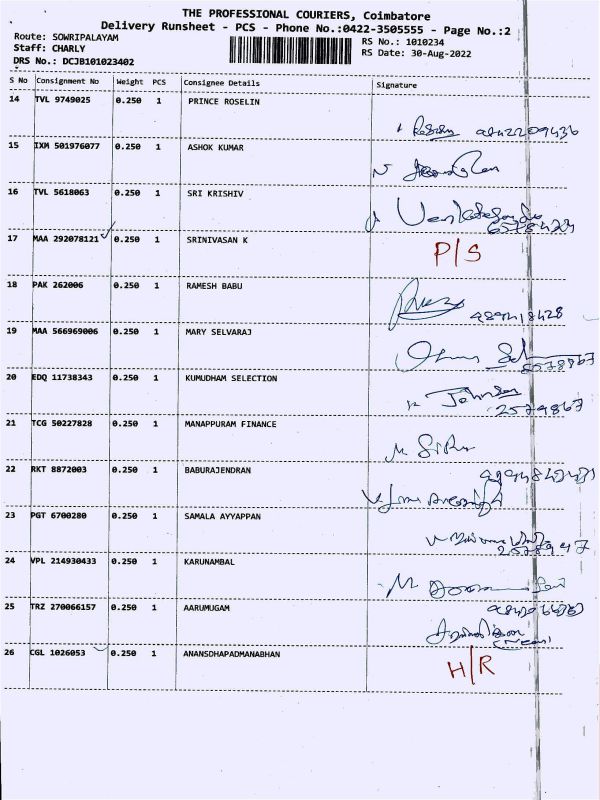 THE PROFESSIONAL COURIERS, Coimbatore
Delivery Runsheet - PCS - Phone No.:0422-3505555 - Page No.:2
Route: SOWRIPALAYAM
RS No.: 1010234
Staff: CHARLY
RS Date: 30-Aug-2022
DRS No.: DCJB101023402
S No Consignment No Weight PCS Consignee Details Signature
14 TVL 9749025 0.250 1 PRINCE ROSELIN
15 IXM 501976077 0.250 1 ASHOK KUMAR
16 TVL 5618063 0.250 1 SRI KRISHIV
17 MAA 292078121 0.250 1 SRINIVASAN K P/S
18 PAK 262006 0.250 1 RAMESH BABU
19 MAA 566969006 0.250 1 MARY SELVARAJ
20 EDQ 11738343 0.250 1 KUMUDHAM SELECTION
2579867
21 TCG 50227828 0.250 1 MANAPPURAM FINANCE
22 RKT 8872003 0.250 1 BABURAJENDRAN
23 PGT 6700280 0.250 1 SAMALA AYYAPPAN
24 VPL 214930433 0.250 1 KARUNAMBAL
25 TRZ 270066157 0.250 1 AARUMUGAM
26 CGL 1026053 0.250 1 ANANSDHAPADMANABHAN H/R